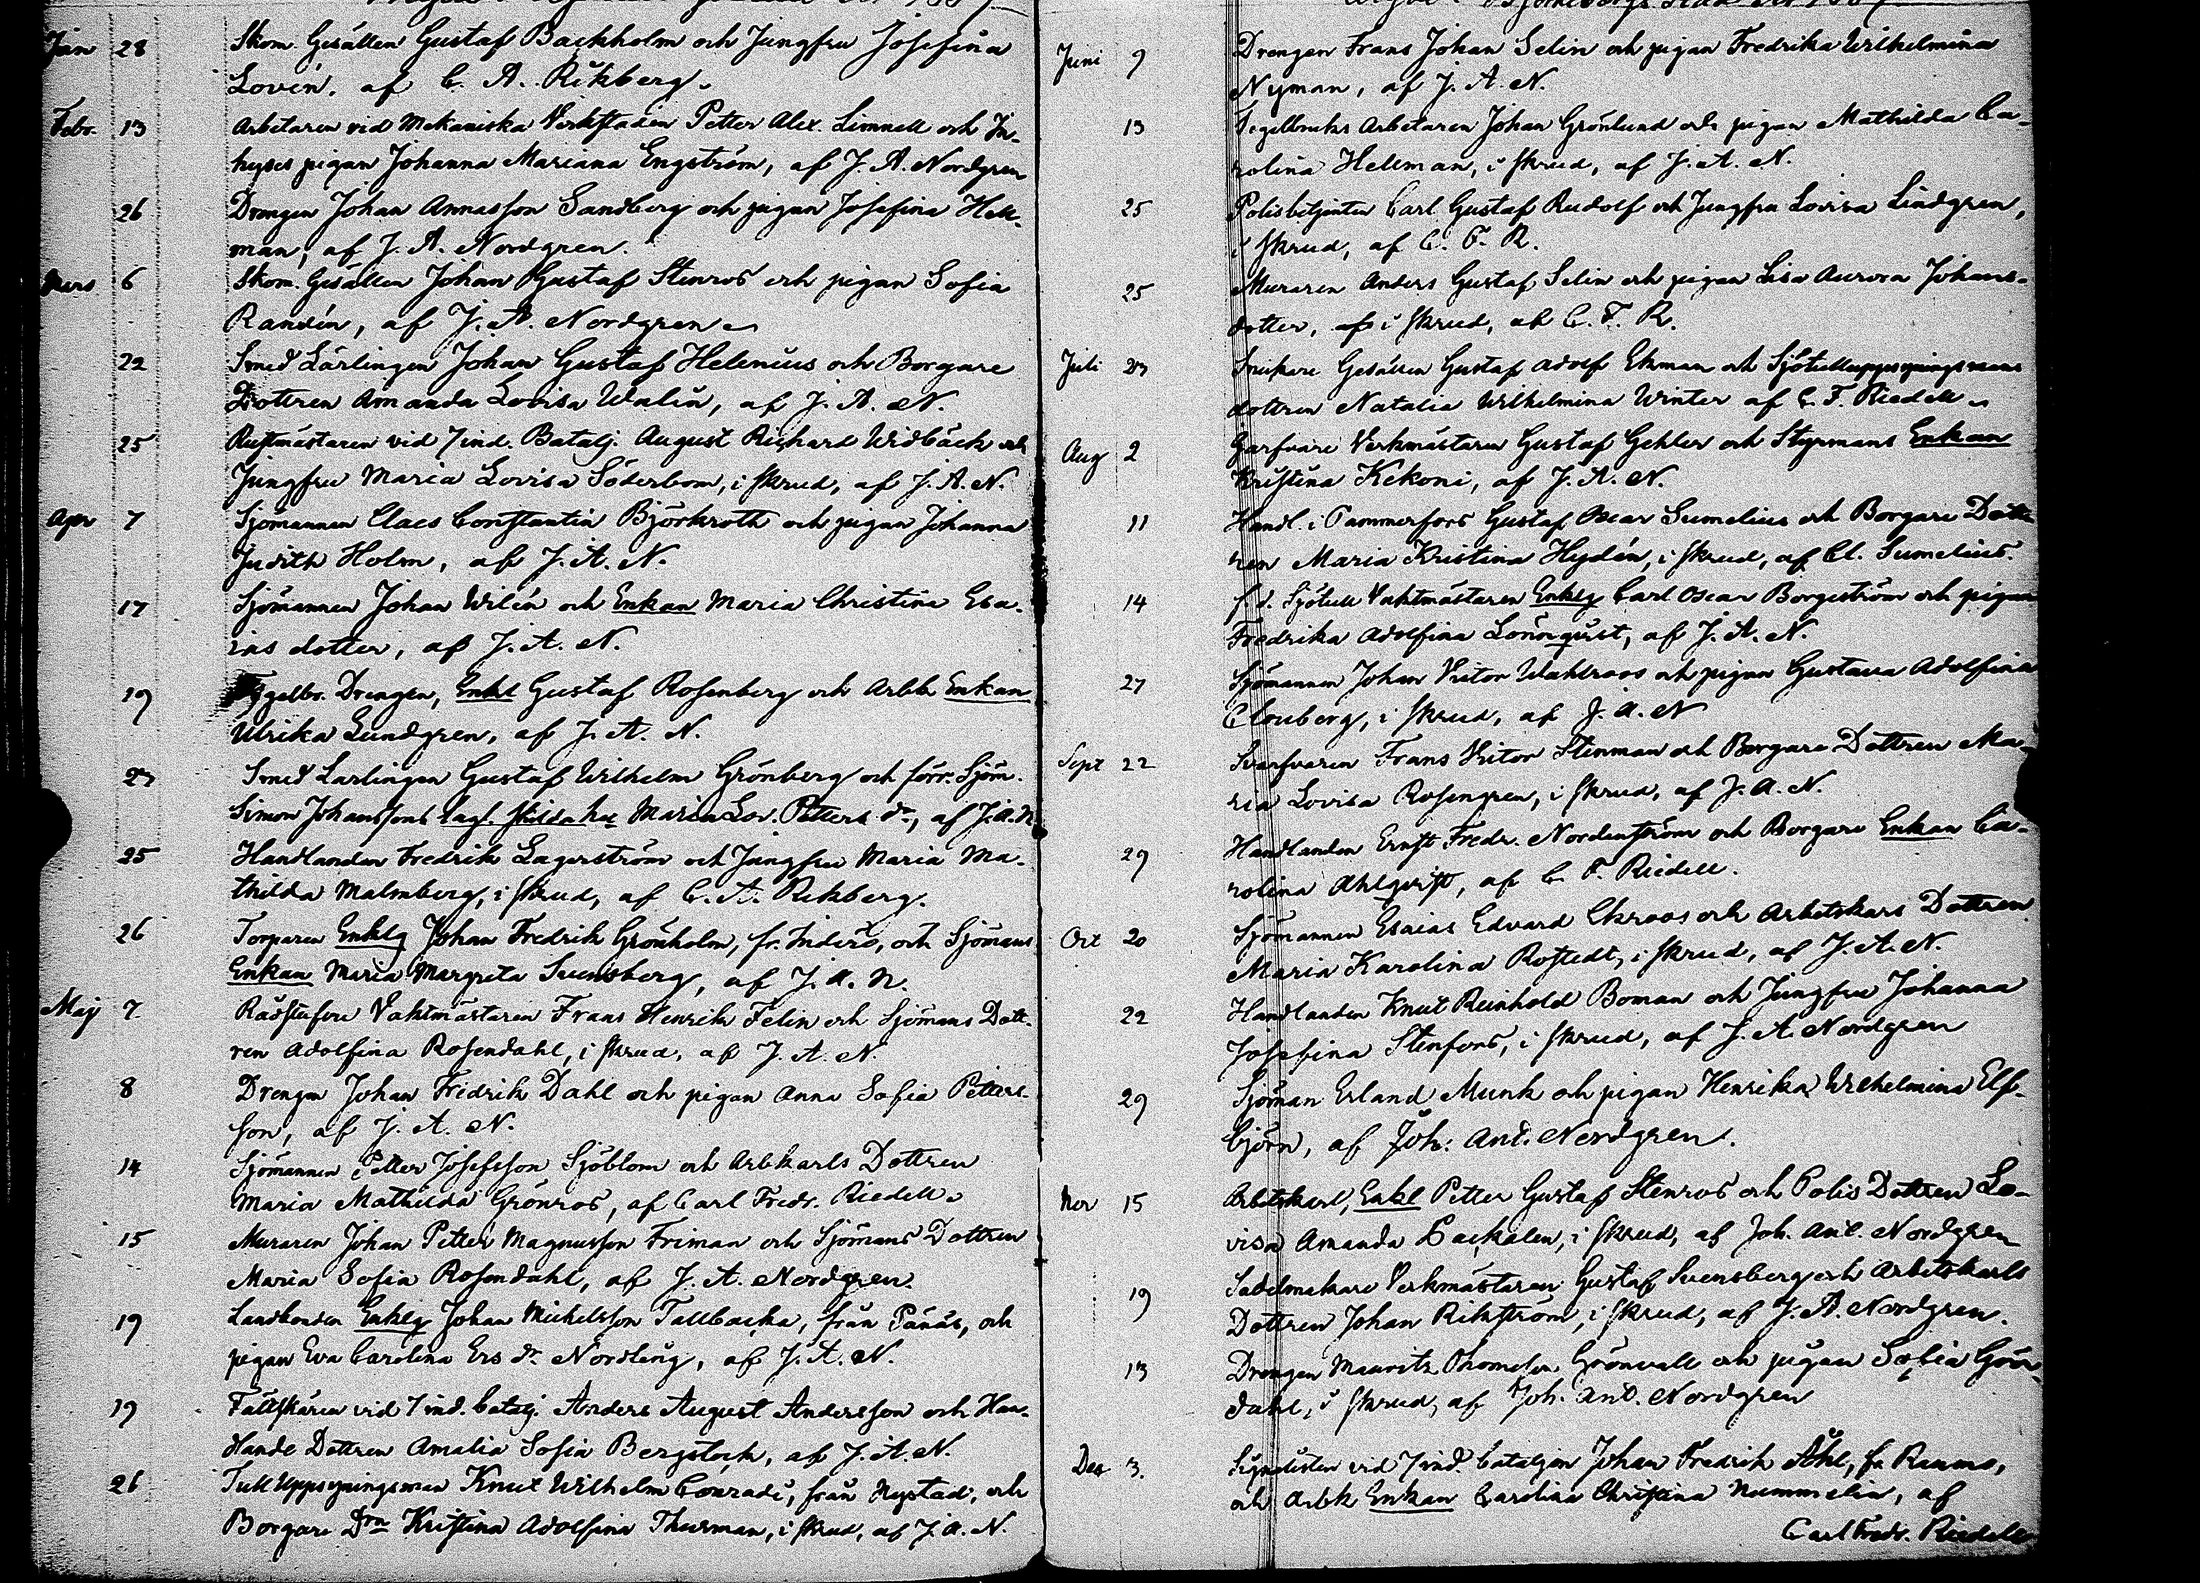 Jan 28 Skom. Gesällen Gustaf Backholm och Jungfru Josefina
Lovén, af C. A. Rikberg.
Febr. 13 Arbetaren vid Mekaniska Verkstaden Petter Alex. Limnell och In-
hyses pigan Johanna Mariana Engström, af J. A. Nordgren
26 Drengen Johan Annasson Sandberg och pigan Josefina Hell-
man, af J. A. Nordgren.
Mars 6 Skom. Gesällen Johan Gustaf Stenros och pigan Sofia
Randén, af J. A. Nordgren
22 Smed Lärlingen Johan Gustaf Helenius och Borgare
Dottren Amanda Lovisa Walin, af J. A. N.
25 Rustmästaren vid 7 ind. Batalj. August Richard Widbäck och
Jungfru Maria Lovisa Söderbom, i skrud, af J. A. N.
Apr 7 Sjömannen Claes Constantin Björkroth och pigan Johanna
Judith Holm, af J. A. N.
17 Sjömannen Johan Wilén och Enkan Maria Christina Esa-
ias dotter, af J. A. N.
19 Tegelbr. Drengen, Enkl Gustaf Rosenberg och Arbk Enkan
Ulrika Lundgren, af J. A. N.
23 Smed Lärlingen Gustaf Wilhelm Grönberg och förr. Sjöm.
Simon Johanssons lagl. skilda hu Maria Lov. Petters dr, af J. A. N.
25 Handlanden Fredrik Lagerström och Jungfru Maria Ma-
thilda Malmberg, i skrud, af C. A. Rikberg.
26 Torparen Enklg Johan Fredrik Grönholm, fr. Inderö, och Sjömans
Enkan Maria Margreta Svensberg, af J. A. N.
Maj 7 Rådstufvu Vaktmästaren Frans Henrik Felin och Sjömans Dott-
ren Adolfina Rosendahl, i skrud, af J. A. N.
8 Drengen Johan Fredrik Dahl och pigan Anna Sofia Petters-
son, af J. A. N.
14 Sjömannen Petter Josefsson Sjöblom och Arbkarls Dottren
Maria Mathilda Grönros, af Carl Fredr. Riedell.
15 Muraren Johan Petter Magnusson Friman och Sjömans Dottren
Maria Sofia Rosendahl, af J. A. Nordgren
19 Landbonden Enklg Johan Michelsson Tallbacka, från Pånäs, och
pigan Eva Carolina Ers dr Nordling, af J. A. N.
19 Fältskären vid 7 ind. batalj. Anders August Andersson och Han-
dlande Dottren Amalia Sofia Bergstock, af J. A. N.
26 Tull Uppsyningsman Knut Wilhelm Conradi, från Nystad, och
Borgare Drn Kristina Adolfina Thurman, i skrud, af J. A. N.
Juni 9 Drengen Frans Johan Selin och pigan Fredrika Wilhelmina
Nyman, af J. A. N.
13 Tegelbruks Arbetaren Johan Grönlund och pigan Mathilda Ca-
rolina Hellman, i skrud, af J. A. N.
25 Polisbetjenten Carl Gustaf Rudolf och Jungfru Lovisa Lindgren,
i skrud, af C. F. R.
25 Muraren Anders Gustaf Selin och pigan Lisa Aurora Johans-
dotter, i skrud, af C. F. R.
Juli 23 Snickare Gesällen Gustaf Adolf Ekman och Sjötulluppsyningsmans
dottren Natalia Wilhelmina Winter af C. F. Riedell
Aug 2 Garfvare Verkmästaren Gustaf Gehler och Styrmans Enkan
Kristina Kekoni, af J. A. N.
11 Handl. i Tammerfors Gustaf Oscar Sumelius och Borgare Dott-
ren Maria Kristina Hydén, i skrud, af Cl. Sumelius.
14 f.d. Sjötull Vaktmästaren Enklg Carl Oscar Borgström och pigan
Fredrika Adolfina Lönnqvist, af J. A. N.
27 Sjömannen Johan Victor Wahlroos och pigan Gustava Adolfina
Clouberg, i skrud, af J. A. N
Sept 22 Svarfvaren Frans Victor Stenman och Borgare Dottren Ma-
ria Lovisa Rosengren, i skrud, af J. A. N.
29 Handlanden Ernst Fredr. Nordenström och Borgare Enkan Ca-
rolina Ahlqvist, af C. F. Riedell.
Oct 20 Sjömannen Esaias Edvard Ekroos och Arbetskars Dottren
Maria Karolina Rostedt, i skrud, af J. A. N.
22 Handlanden Knut Reinhold Boman och Jungfru Johanna
Josefina Stenfors, i skrud, af J. A. Nordgren
29 Sjöman Erland Munk och pigan Henrika Wilhelmina Elf-
björn, af Joh. Ant. Nordgren.
Nov 15 Arbetskarl, Enkl Petter Gustaf Stenros och Polis Dottren Lo-
visa Amanda Backalen, i skrud, af Joh. Ant. Nordgren
19 Sadelmakare Verkmästaren Gustaf Svensberg och Arbetskarls
Dottren Johan Rikström, i skrud, af J. A. Nordgren.
13 Drengen Mauritz Grönvall och pigan Sofia Grön-
dahl, i skrud, af Joh. Ant. Nordgren
Dec 3. vid 7 ind. bataljon Johan Fredrik Åhl, fr Raumo,
och Arbk Enkan Carolina Christina Nummelin, af
Carl Fredr. Riedell